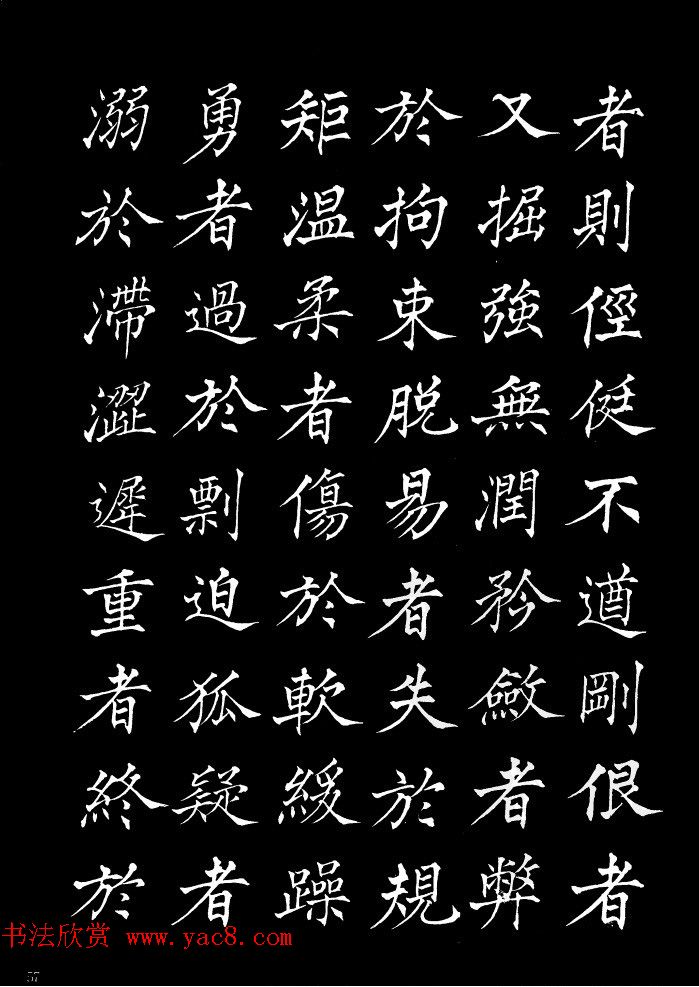 者則俓侹不遒剛佷者
又掘強無潤矜斂者弊
於拘束脱易者失於規
矩温柔者傷於軟緩躁
勇者過於剽迫狐疑者
溺於滯澀遲重者終於
书法欣赏 www.yac8.com
57